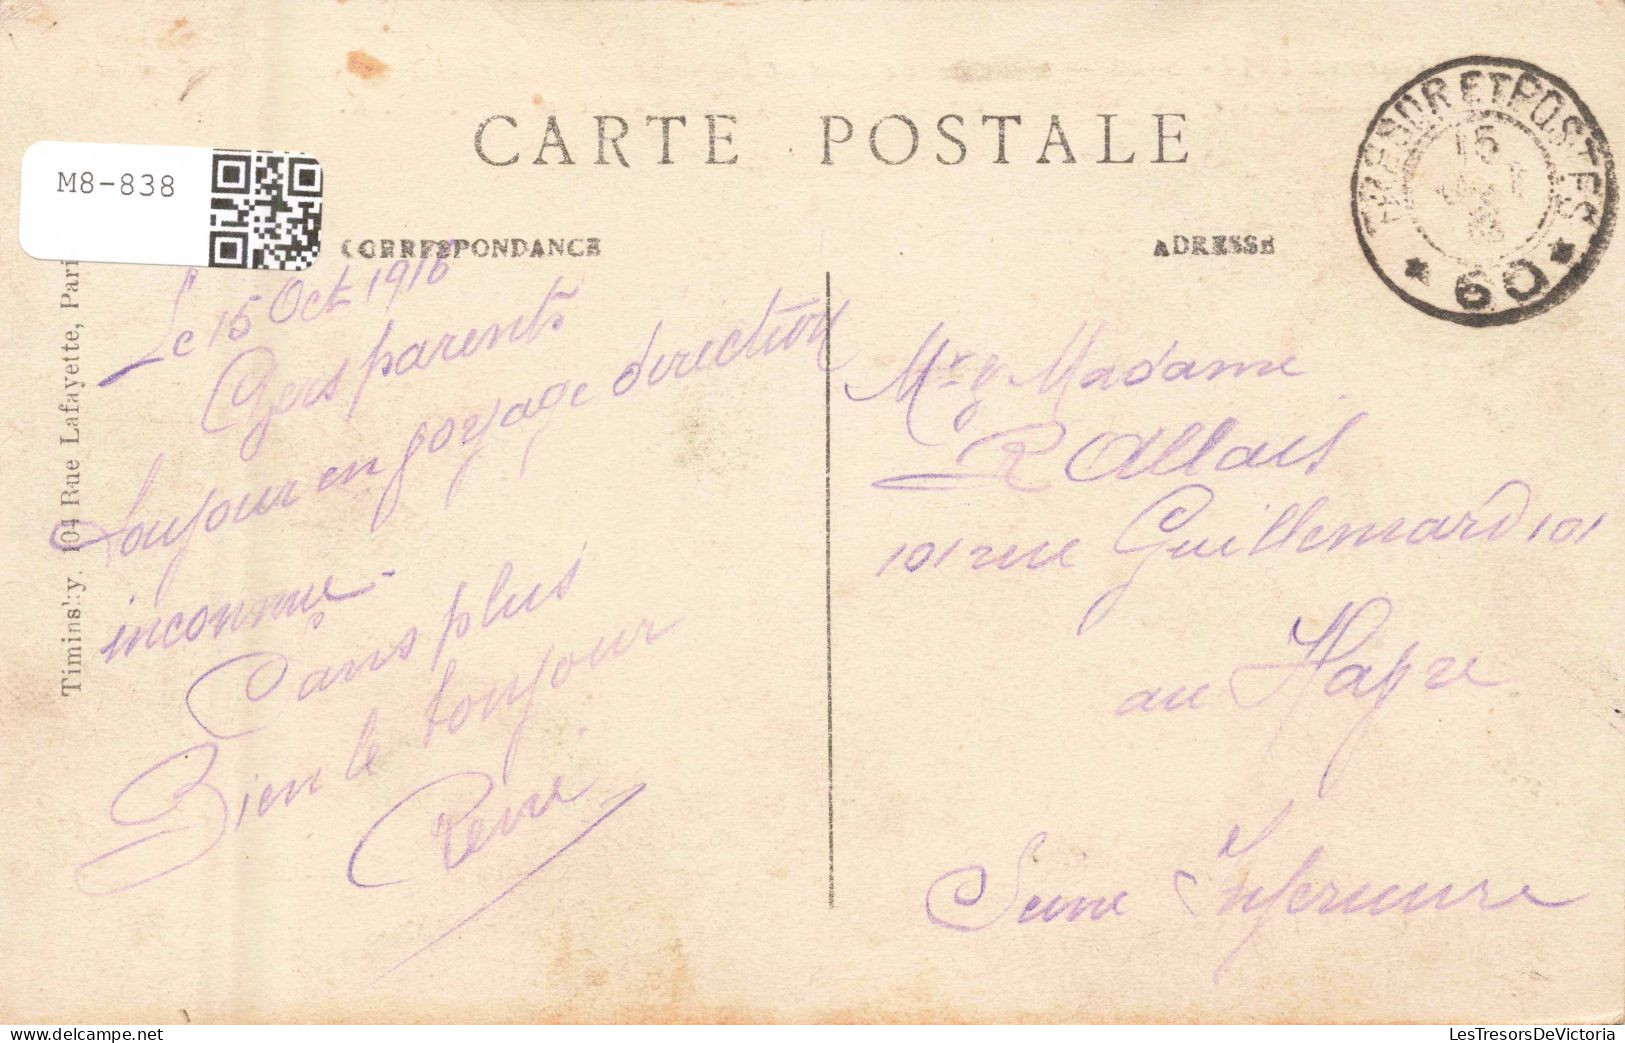 CARTE POSTALE
M8-838
CORRESPONDANCE
ADRESSE
TRESOR ET POSTES
15
* 60 *
Timinsky, 104 Rue Lafayette, Pari
Le 15 Oct 1916
Chers parents
Toujour en voyage direction
inconnue -
Sans plus
Bien le toujour
René
Mr & Madame
R Allais
101 rue Guillemard 101
au Havre
Seine Inferieure
LesTresorsDeVictoria.com